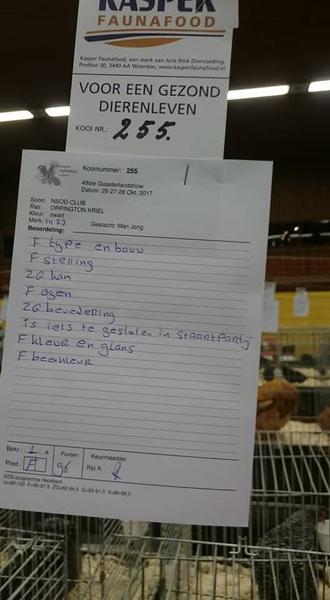 KASPER
FAUNAFOOD
Kasper Faunafood, een merk van Arie Blok Diervoeding,
Postbus 30, 3440 AA Woerden, www.kasperfaunafood.nl
VOOR EEN GEZOND
DIERENLEVEN
KOOI NR.: 255.
Kooinummer: 255
49ste Gaasterlandshow
Datum: 26-27-28 Okt. 2017
Soort: NSOD-CLUB
Ras: ORPINGTON KRIEL
Kleur: zwart
Merk:
Geslacht: Man Jong
Beoordeling:
F type en bouw
F stelling
ZG kam
F ogen
ZG bevedering
is iets te gesloten in staartpartij
F kleur en glans
F beenkleur
Bekr.: 1 e
Punten
Keurmeester
Pred.: F
96
Rijs A.
KDS-programma Heckbert
U=98-100 F=95-97,5 ZG=92-94,5 G=89-91,5 V=86-88,5